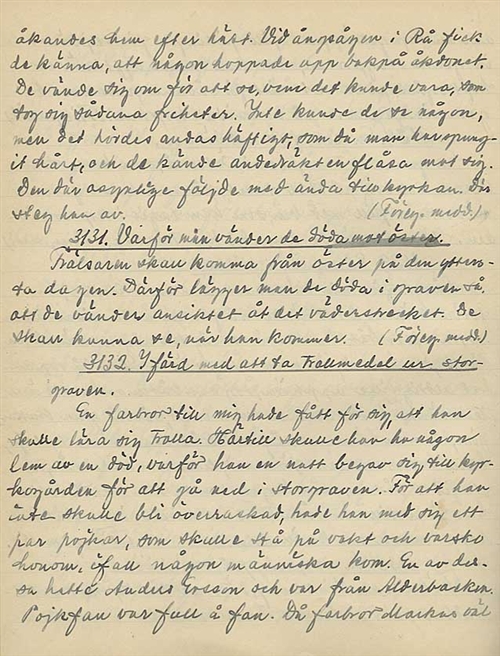 åkandes hem efter häst. Vid ångsågen i Rå fick
de känna, att någon hoppade upp bakpå åkdonet.
De vände sig om för att se, vem det kunde vara, som
tog sig sådana friheter. Inte kunde de se någon,
men det hördes andas häftigt, som då man har sprung-
it hårt, och de kände andedräkten flåsa mot sig.
Den där osynlige följde med ända till kyrkan. Där
steg han av. (Föreg. medd.)
3131. Varför man vänder de döda mot öster.
Frälsaren skall komma från öster på den ytters-
ta dagen. Därför lägger man de döda i graven så,
att de vänder ansiktet åt det väderstrecket. De
skall kunna se, när han kommer. (Föreg. medd.)
3132. I färd med att ta Trollmedel ur stor-
graven.
En farbror till mig hade fått för sig, att han
skulle lära sig Trolla. Härtill skulle han ha någon
lem av en död, varför han en natt begav sig till kyr-
kogården för att gå ned i storgraven. För att han
inte skulle bli överraskad, hade han med sig ett
par pojkar, som skulle stå på vakt och varsko
honom, ifall någon människa kom. En av des-
sa hette Anders Ersson och var från Alderbacken.
Pojkfan var full å fan. Då farbror Markus väl